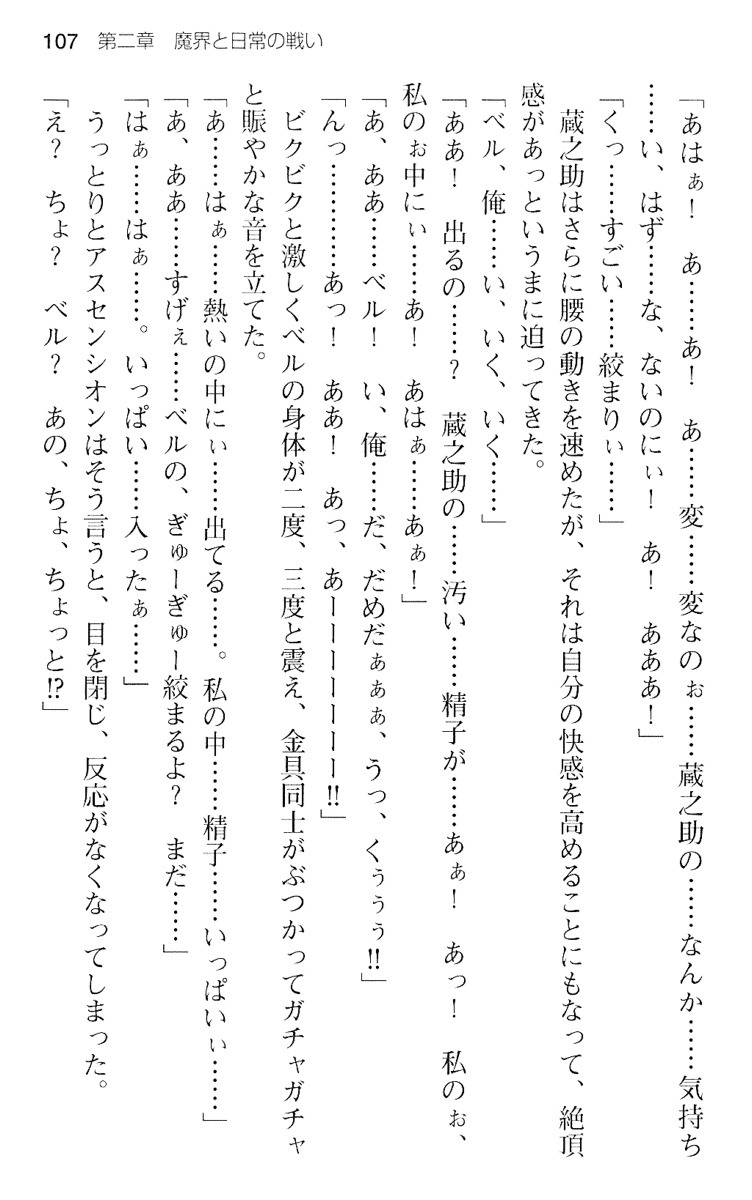 107　第二章　魔界と日常の戦い
「あはぁ！　あ……あ！　あ……変……変なのぉ……蔵之助の……なんか……気持ち
……い、はず……な、ないのにぃ！　あ！　あああ！」
「くっ……すごい……絞まりぃ……」
　蔵之助はさらに腰の動きを速めたが、それは自分の快感を高めることにもなって、絶頂
感があっというまに迫ってきた。
「ベル、俺……い、いく、いく……」
「ああ！　出るの……？　蔵之助の……汚い……精子が……あぁ！　あっ！　私のぉ、
私のぉ中にぃ……あ！　あはぁ……あぁ！」
「あ、ああ……ベル！　い、俺……だ、だめだぁぁぁ、うっ、くぅぅぅ!!」
「んっ…………あっ！　ああ！　あっ、あーーーーーーー!!」
　ビクビクと激しくベルの身体が二度、三度と震え、金具同士がぶつかってガチャガチャ
と賑やかな音を立てた。
「あ……はぁ……熱いの中にぃ……出てる……。私の中……精子……いっぱいぃ……」
「あ、ああ……すげぇ……ベルの、ぎゅーぎゅー絞まるよ？　まだ……」
「はぁ……はぁ……。いっぱい……入ったぁ……」
　うっとりとアスセンシオンはそう言うと、目を閉じ、反応がなくなってしまった。
「え？　ちょ？　ベル？　あの、ちょ、ちょっと!?」